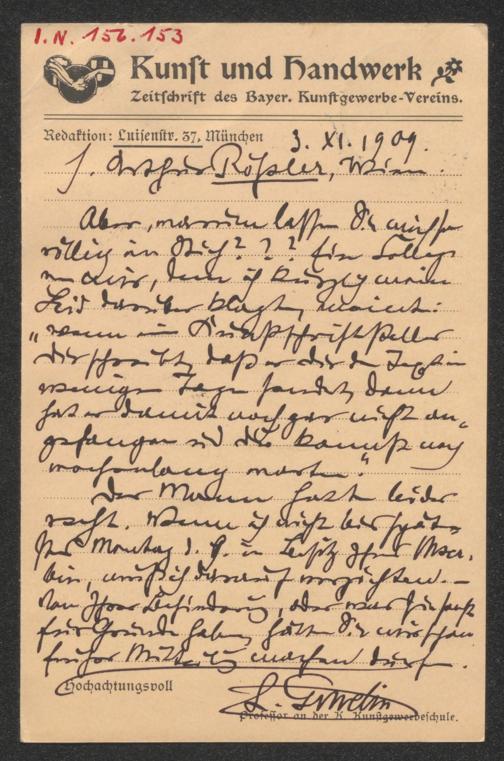 I.N. 156.153
Kunst und Handwerk
Zeitschrift des Bayer. Kunstgewerbe-Vereins.
Redaktion: Luisenstr. 37, München 3. XI. 1909.
H. Arthur Rößler, Wien.
Aber, warum lassen Sie mich so
völlig im Stich? ? ? Ein College
von mir, dem ich kürzlich mein
Leid darüber klagte, meinte:
"wenn ein Kunstschriftsteller
dir schreibt, daß er dir den Text in
wenigen Tagen sendet, dann
hat er damit noch gar nicht an-
gefangen und du kannst noch
wochenlang warten."
Der Mann hatte leider
recht. Wenn ich nicht bis späte-
stens Montag d. 8. im Besitz Ihres Mscr.
bin, muß ich darauf verzichten. —
Von Ihrer Behinderung, oder was Sie sonst
für Gründe haben, hätten Sie mir schon
früher Mitteilung machen dürfen.
Hochachtungsvoll
L. Gmelin
Professor an der K. Kunstgewerbeschule.